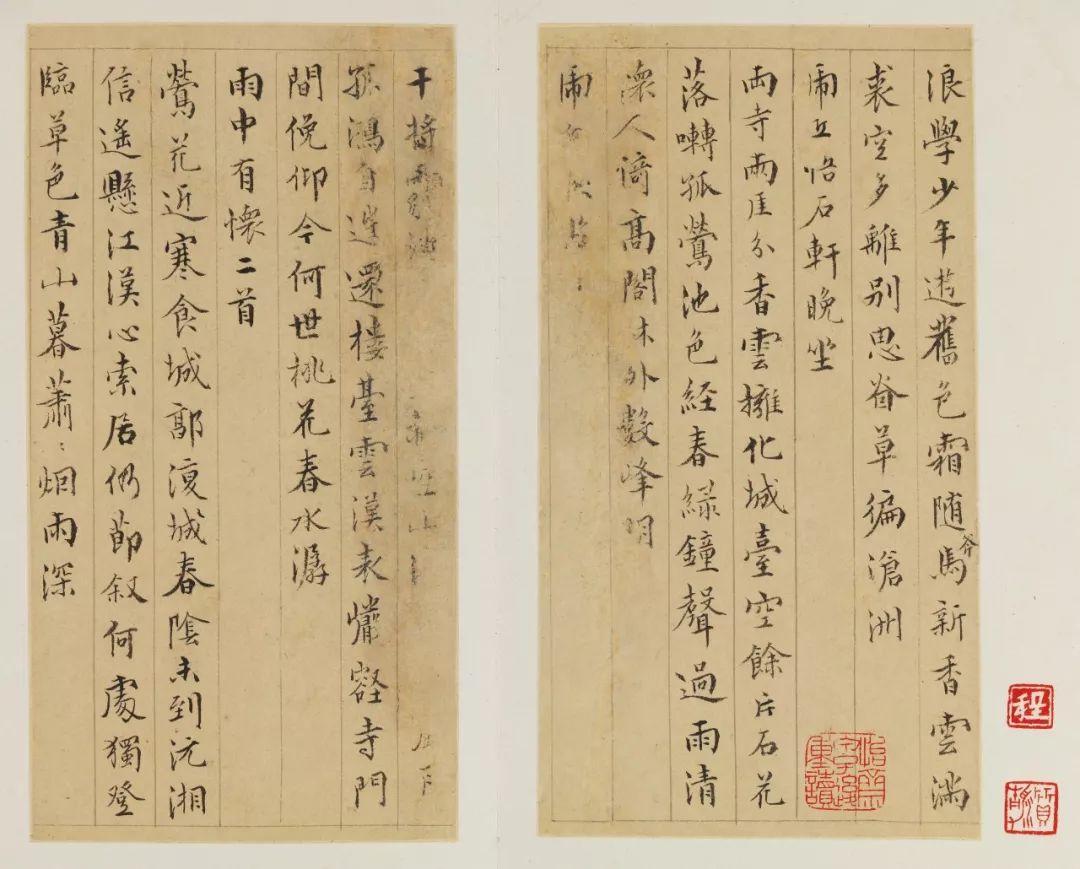 浪學少年遊舊色霜随馬新香雲滿
裘空多離别思春草徧滄洲
虎丘悟石軒晚坐
兩寺兩厓分香雲擁化城臺空餘片石花
落囀孤鶯池色經春緑鐘聲過雨清
懷人倚高閣林外數峰明
虎
干將空山
孤鴻自還樓臺雲漢表寺門
間俛仰今何世桃花春水潺
雨中有懷二首
鶯花近寒食城郭復城春陰未到沅湘
信遥懸江漢心索居仍節叙何處獨登
臨草色青山暮蕭〻烟雨深
程